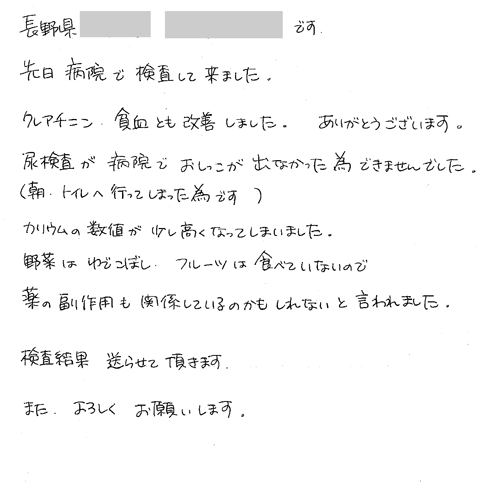 長野県 です
先日 病院で 検査して 来ました。
クレアチニン. 貧血とも 改善しました。 ありがとうございます。
尿検査が 病院で おしっこが 出なかった為 できませんでした。
(朝. トイレへ 行ってしまった為です )
カリウムの 数値が 少し高くなってしまいました。
野菜は ゆでこぼし. フルーツは 食べていないので
薬の副作用も 関係しているのかもしれないと 言われました。
検査結果 送らせて 頂きます.
また. よろしく お願いします。